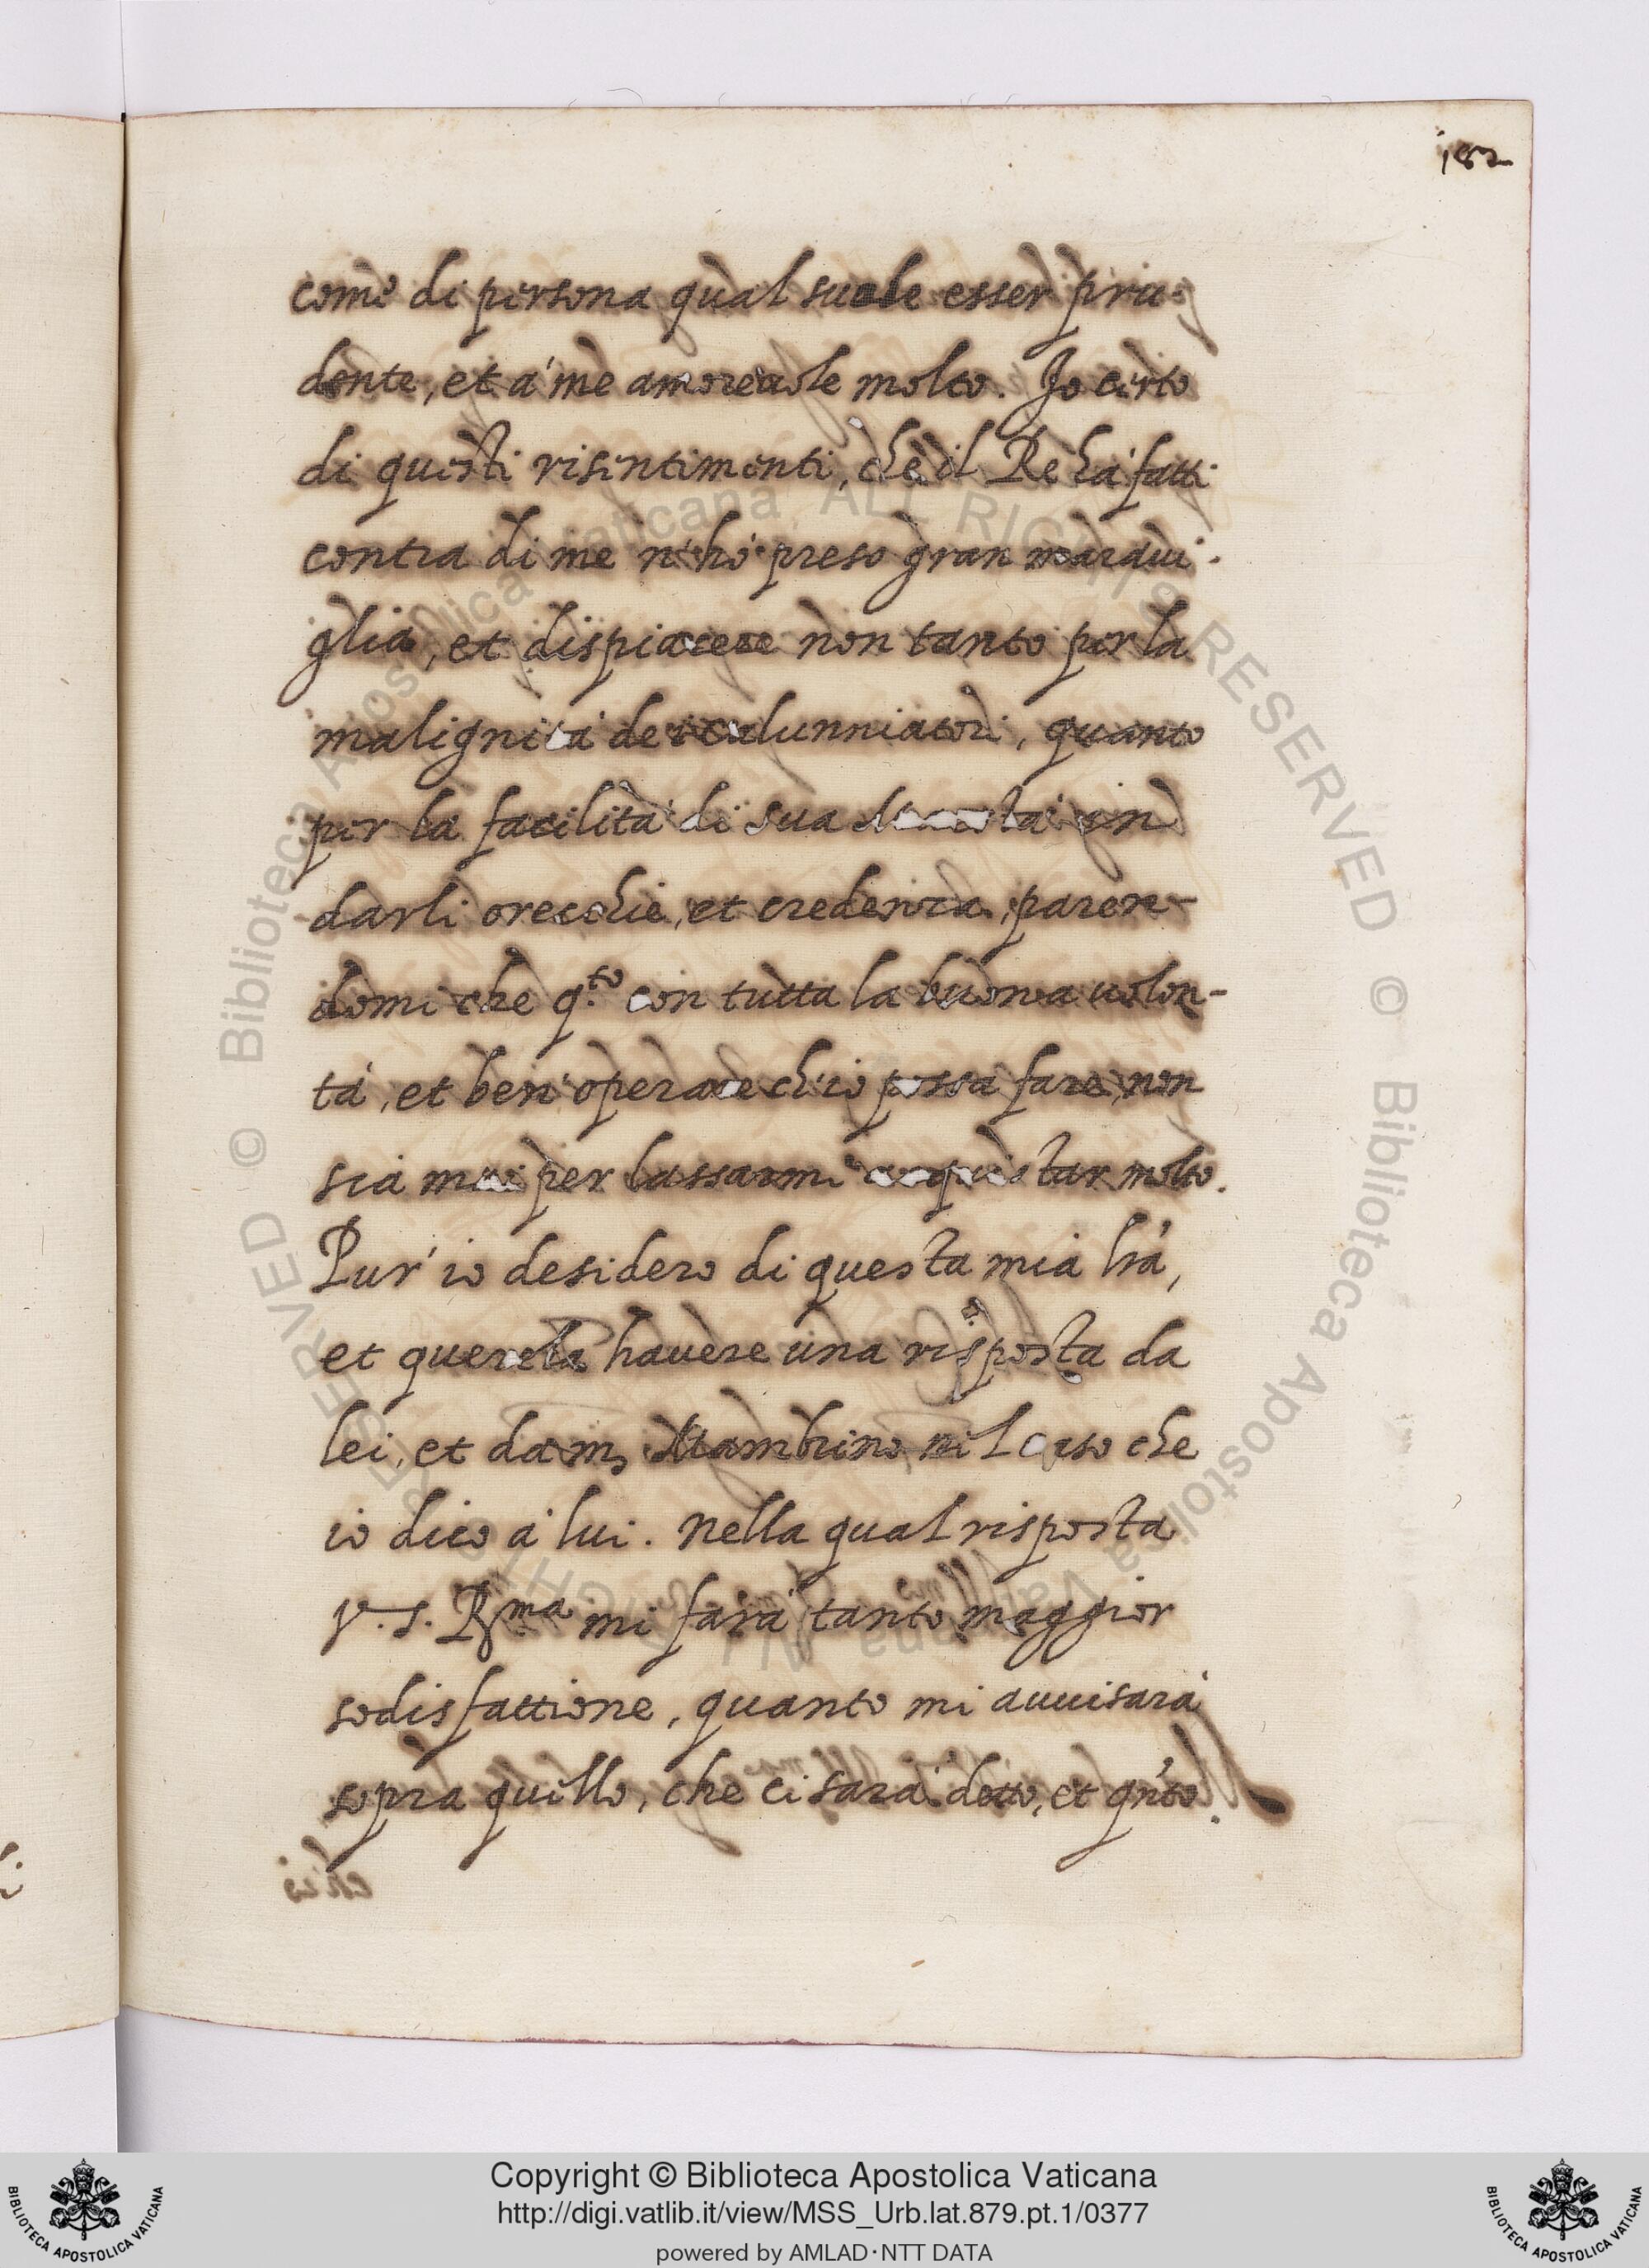 182
come di persona qual suole esser pru-
dente, et à me amoreuole molto. Io certo
di questi risentimenti, che il Re hà fatti
contra di me n'hò preso gran maraui-
glia, et dispiacere non tanto per la
malignità de i calunniatori, quanto
per la facilità di sua Maestà in
darli orecchie, et credenza, paren-
domi che q.to con tutta la buona uolon-
tà, et ben operare ch'io possa fare, non
sia mai per lassarmi acquistar molto.
Pur' io desidero di questa mia lrã,
et querela hauere una risposta da
lei, et da m. Mambrino nel caso che
io dico à lui. Nella qual risposta
V. S. R.ma mi farà tanto maggior
sodisfattione, quanto mi auuisarà
sopra quello, che ci sarà detto, et qñto
Copyright © Biblioteca Apostolica Vaticana
http://digi.vatlib.it/view/MSS_Urb.lat.879.pt.1/0377
powered by AMLAD·NTT DATA
BIBLIOTECA APOSTOLICA VATICANA
BIBLIOTECA APOSTOLICA VATICANA
© Biblioteca Apostolica Vaticana ALL RIGHTS RESERVED
© Biblioteca Apostolica Vaticana ALL RIGHTS RESERVED